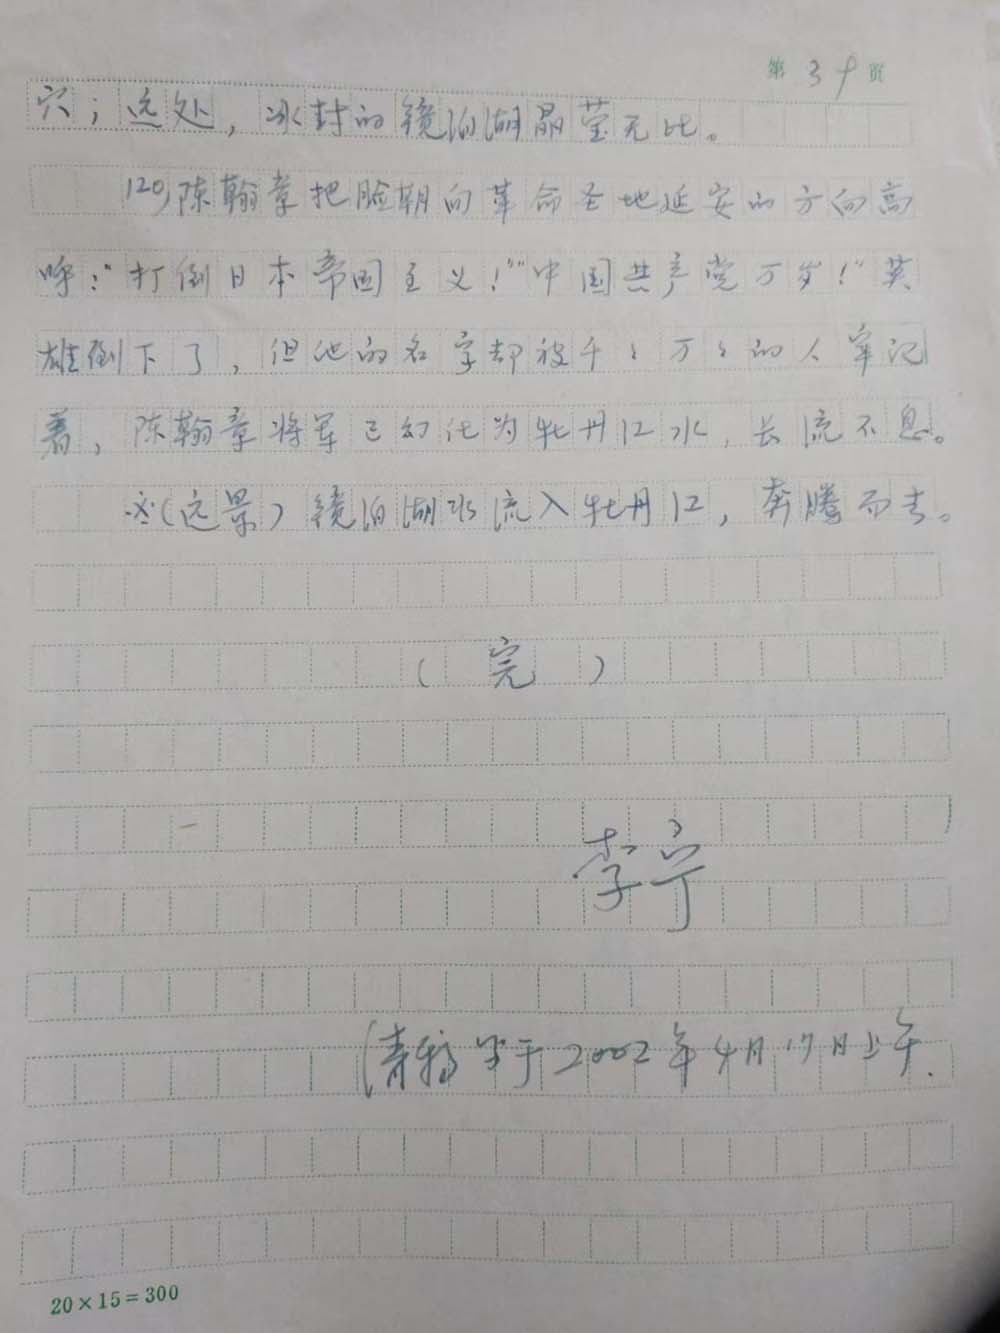 第 39 页
穴；远处，冰封的镜泊湖晶莹无比。
120，陈翰章把脸朝向革命圣地延安的方向高
呼：“打倒日本帝国主义！”“中国共产党万岁！”英
雄倒下了，但他的名字却被千々万々的人牢记
着，陈翰章将军已幻化为牡丹江水，长流不息。
（远景）镜泊湖水流入牡丹江，奔腾而去。
（完）
李宁
清稿 于2002年4月17日上午.
20×15=300